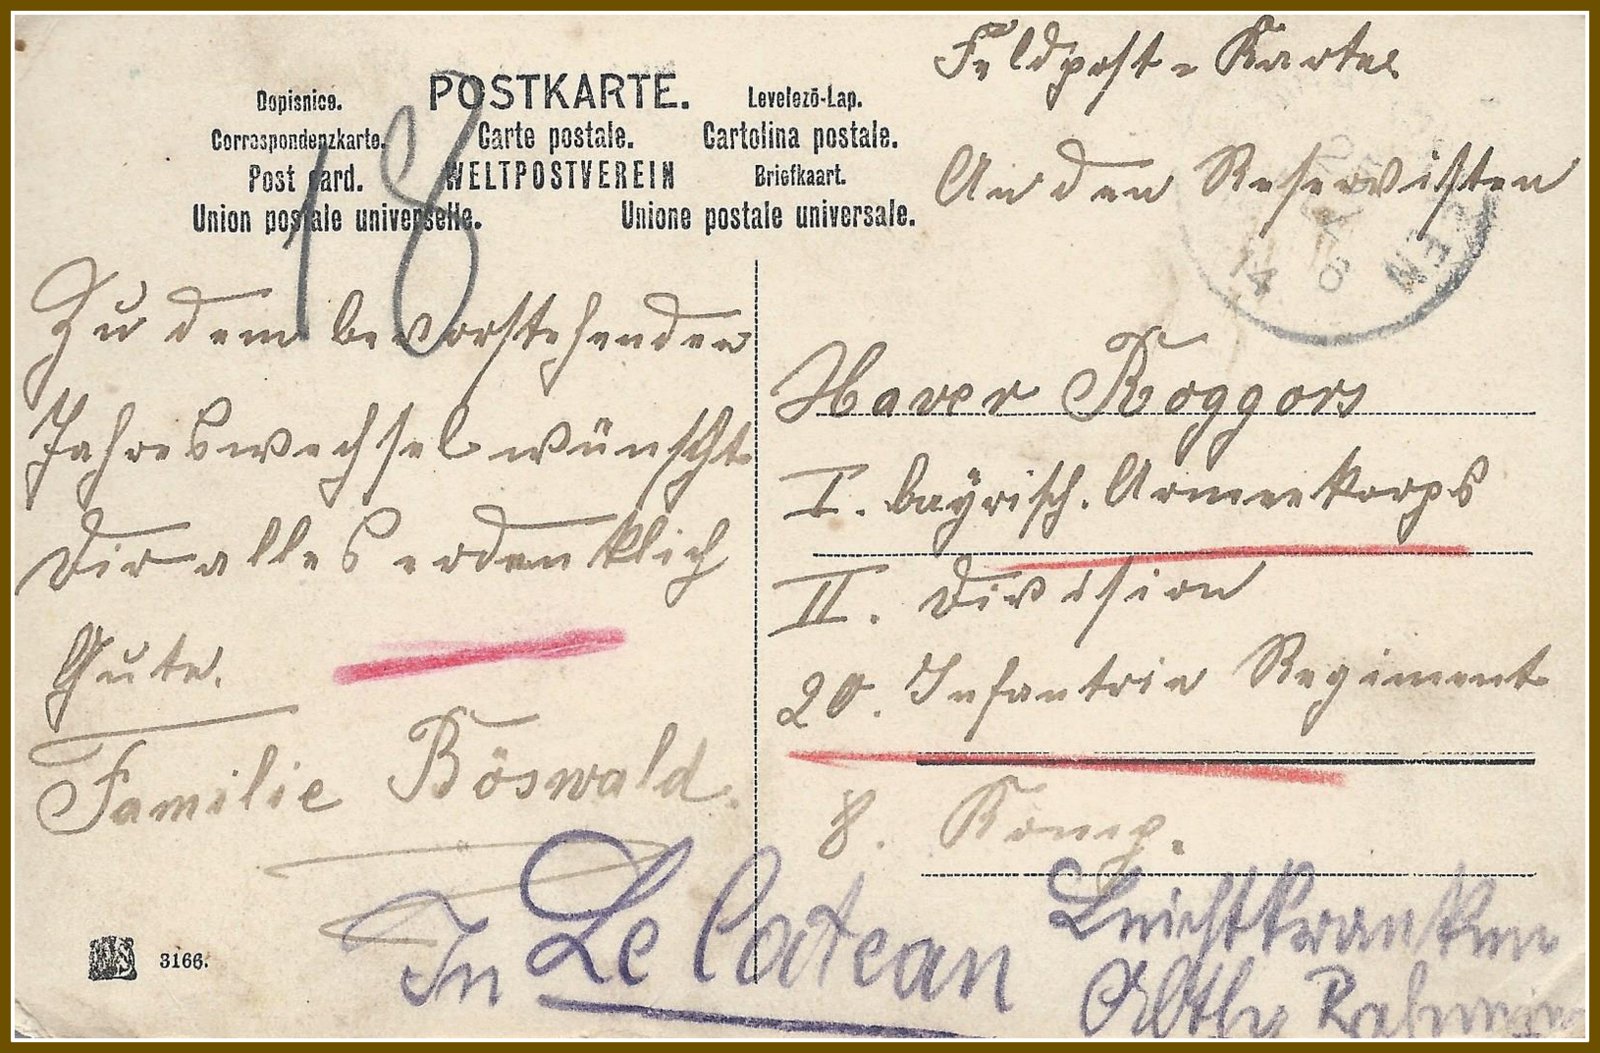 Feldpost-Karte
POSTKARTE.
Dopisnice. Levelezö-Lap.
Correspondenzkarte. Carte postale. Cartolina postale.
Post card. WELTPOSTVEREIN Briefkaart.
Union postale universelle. Unione postale universale.
18
An den Reservisten
14
Zu dem bevorstehenden
Jahreswechsel wünscht
Dir alles erdenklich
Gute.
Familie Böswald.
Xaver Roggors
I. bayrisch. Armeekorps
II. Division
20. Infantrie Regiment
8. Komp.
In Le Cateau
Leichtkranken
Abtlg
3166.